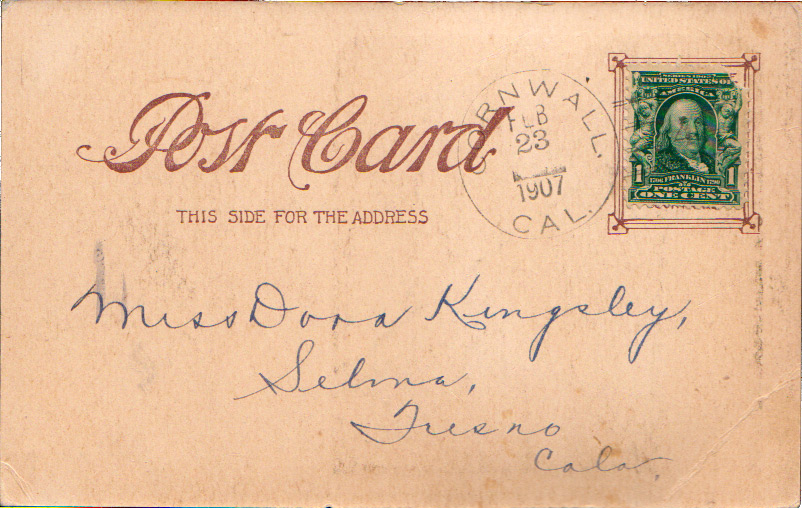 Post Card
THIS SIDE FOR THE ADDRESS
CORNWALL.
FEB
23
1907
CAL.
SERIES 1902
UNITED STATES OF
AMERICA
1 1706 FRANKLIN 1790 1
POSTAGE
ONE CENT
Miss Dora Kingsley,
Selma,
Fresno
Cala.